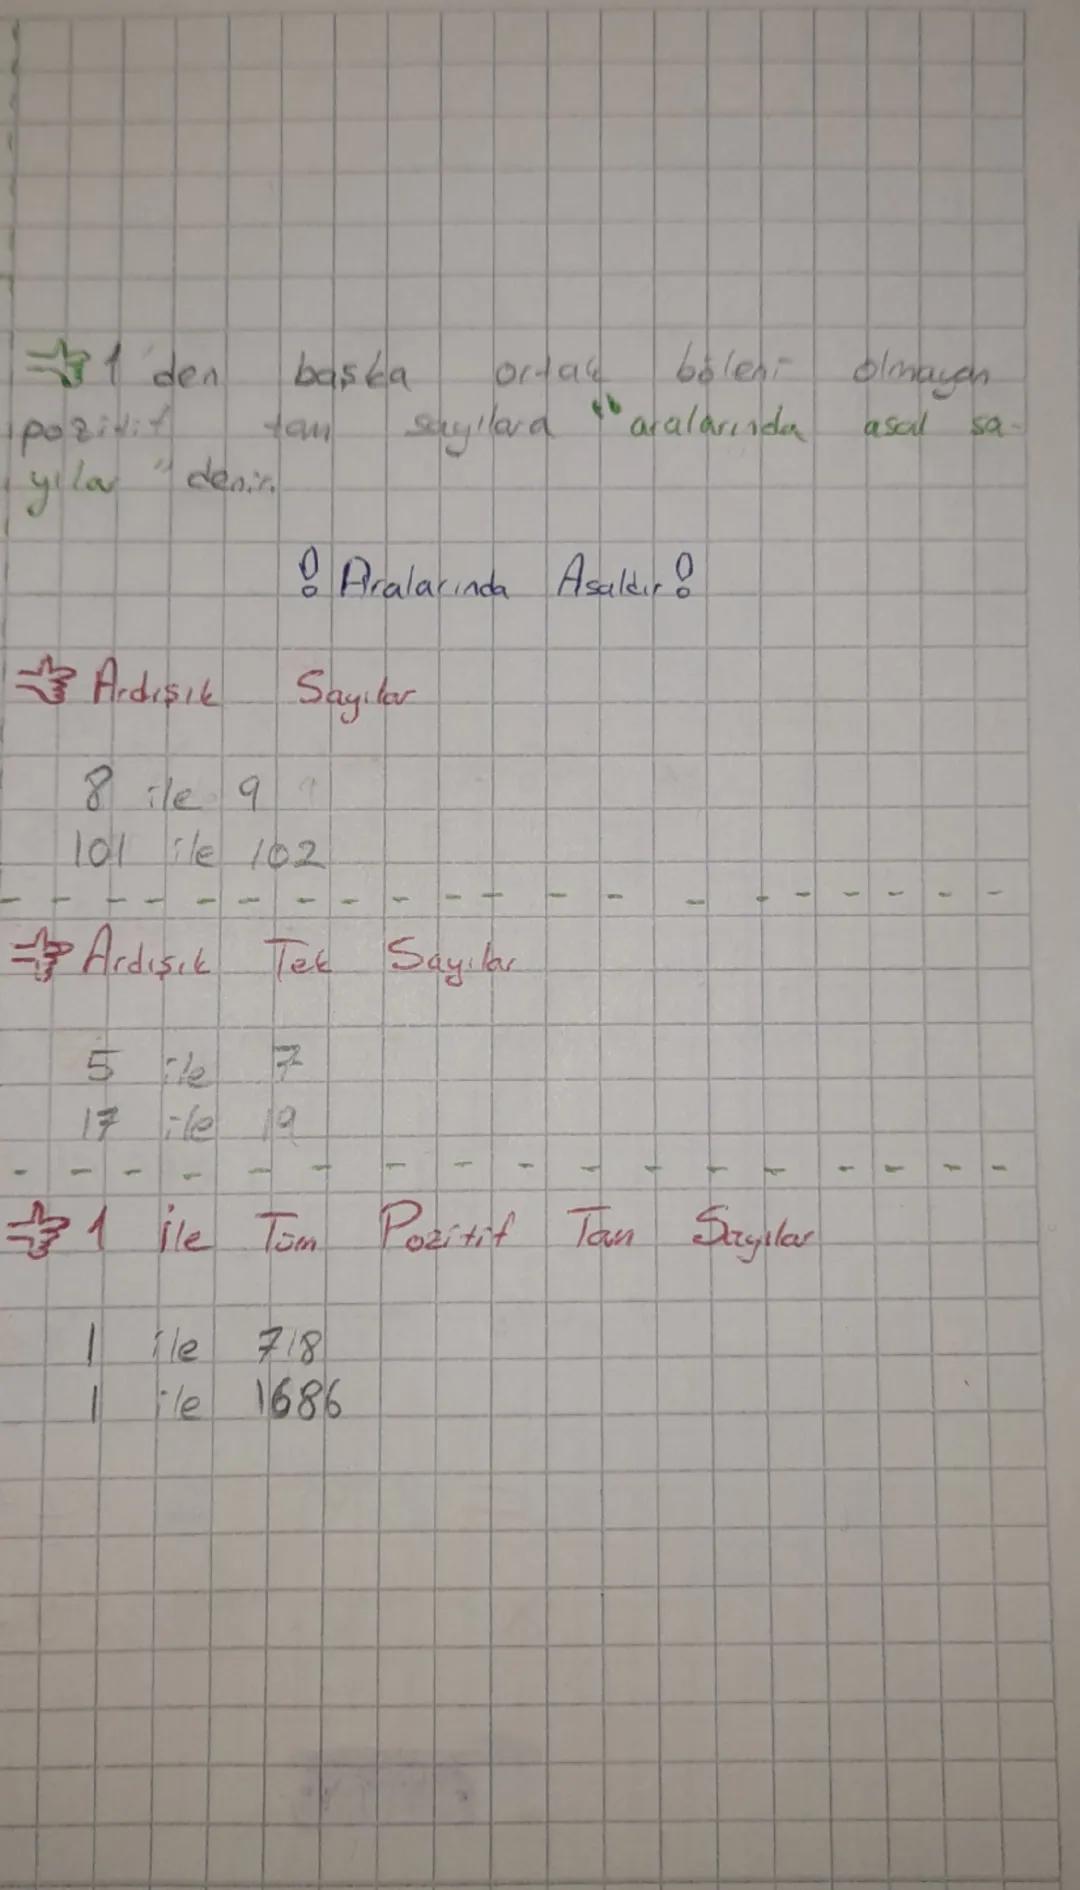 1 den başka ortak böleni olmayan
pozitif tam sayılara "aralarında asal sa-
yılar" denir.
! Aralarında Asaldır !
Ardışık Sayılar
8 ile 9
101 ile 102
Ardışık Tek Sayılar
5 ile 7
17 ile 19
1 ile Tüm Pozitif Tam Sayılar
1 ile 718
1 ile 1686